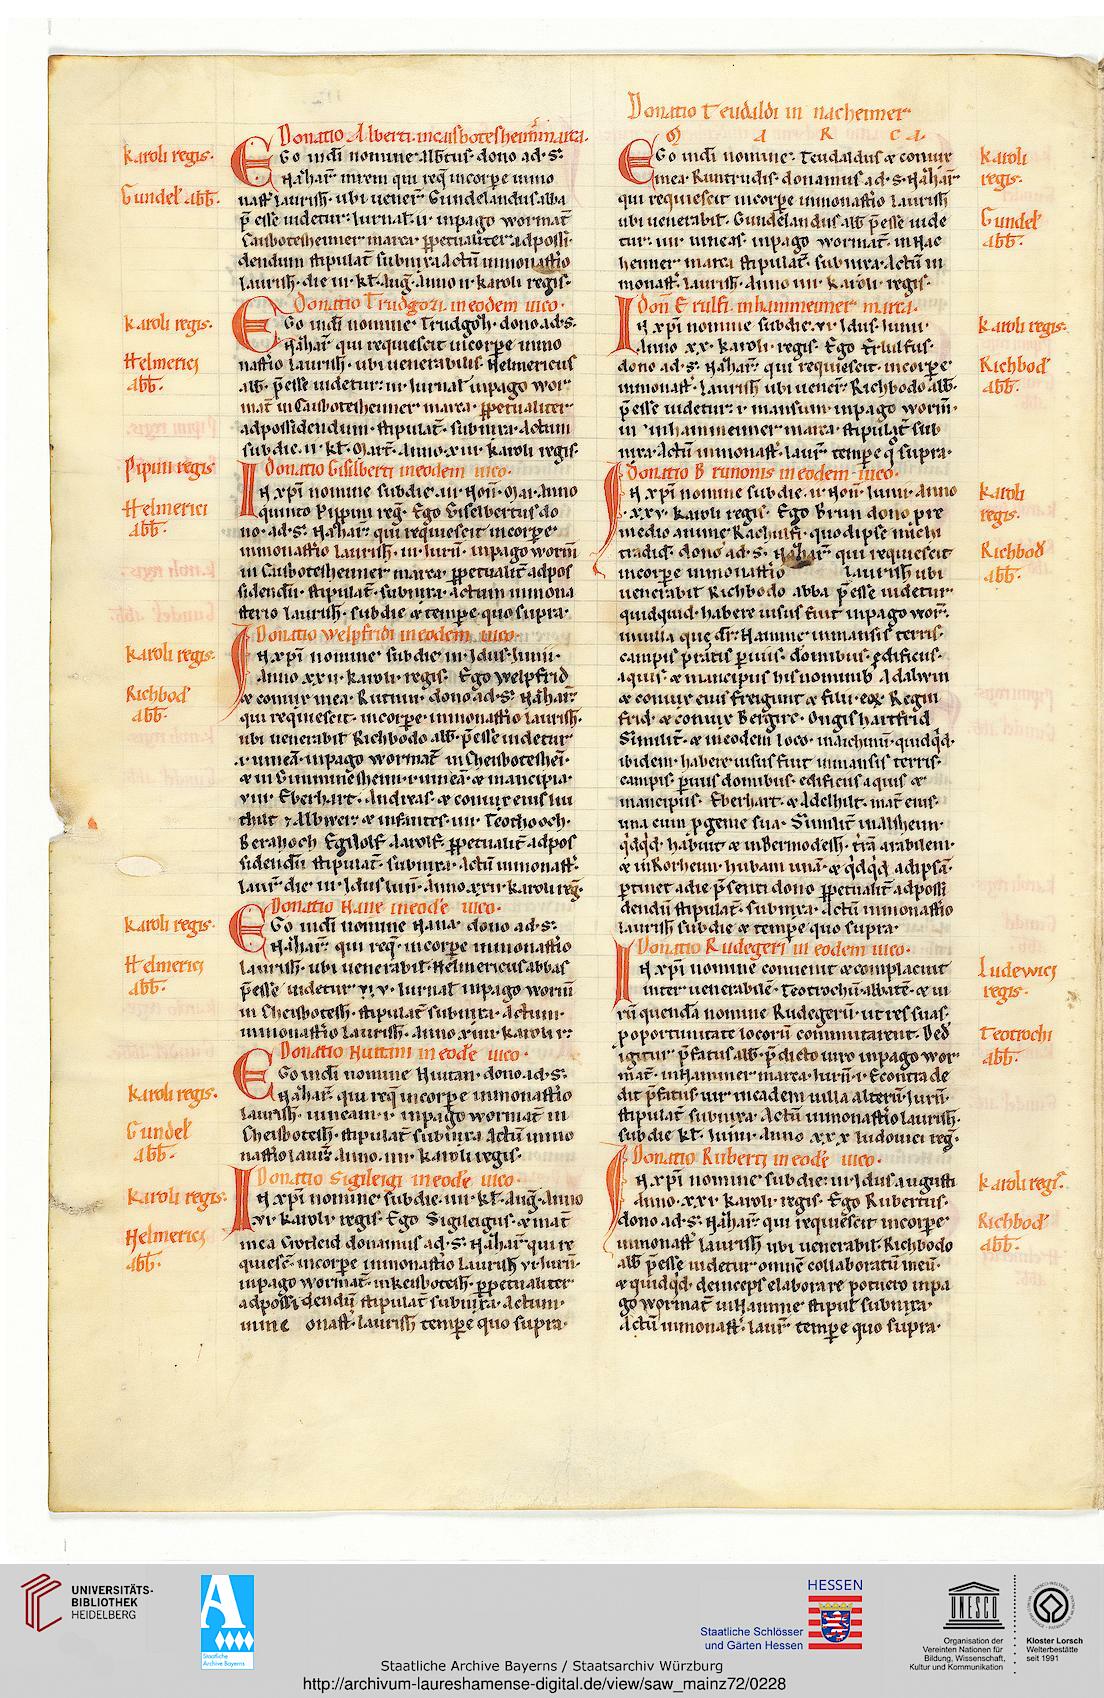 Donatio Alberti in caisbotesheim marca.
karoli regis.
EGo in dī nomine Albtus dono ad S.
Nahař in rem qui req̄ in corpe inmo
Gundeł abb.
nast̄ laurish. ubi uener Gundelandus abba
p̄esse uidetur. iurnał. ii. in pago wormat̄
Caisbotesheimer marca ppetualiter ad possi
dendum stipulat̄ subnixa actū in monastio
laurish. die iii. kł. Aug̃. Anno ii. karoli regis.
Donatio Trudgozi in eodem uico.
karoli regis.
EGo in dī nomine Trudgoz. dono ad S.
Nahař qui requiescit in corpe inmo
Helmerici
nastio laurish. ubi uenerabilis Helmericus
abb.
abb. p̄esse uidetur. iii. iurnał in pago wor
mat̄ in Caisbotesheimer marca. ppetualiter
ad possidendum. stipulat̄ subnixa. Actum
sub die. ii. kł. Mart̄. Anno. xiii. karoli regis.
Pipini regis
Donatio Gisilberti in eodem uico.
IN xpi nomine sub die. iii. Non̄. Mai. anno
Helmerici
quinto Pippini reg̃. Ego Giselbertus do
abb.
no. ad. S. Nahař qui requiescit in corpe
in monastio laurish. iii. iurn̄. in pago worm̄
in Caisbotesheimer marca. ppetualit̄ ad pos
sidendū. stipulat̄. subnixa. Actum in mona
sterio laurish. sub die & tempe quo supra.
Donatio Welpfridi in eodem uico.
karoli regis.
IN xpi nomine sub die iii. Idus Iunii.
Anno xxii. karoli regis. Ego Welpfrid
Richbod
& coniux mea Rutuuin dono ad S. Nahař
abb.
qui requiescit. in corpe in monastio laurish.
ubi uenerabił Richbodo abb. p̄esse uidetur
.i. uineā. in pago wormat̄ in Cheisbotesheī.
& in Grimmesheim. i. uineā & mancipia.
viii. Eberhart. Andreas. & coniux eius
Berahoch Egilolf. Aarolf. ppetualit̄ ad pos
sidendū stipulat̄. subnixa. Actū in monast̄.
laur̄ die iii. Idus iun̄. Anno. xxii. karoli reg̃.
Donatio Hane in eodē uico.
karoli regis.
EGo in dī nomine Hana. dono ad. S.
Nahař qui req̄. in corpe in monastio
Helmerici
laurish. ubi uenerabił. Helmericus abbas
abb.
p̄esse uidetur vi. v. iurnał in pago worm̄
in Cheisbotesh. stipulat̄ subnixa. Actum.
in monastio laurish. Anno xiiii. karoli r.
Donatio Huttini in eodē uico.
EGo in dī nomine Huitan. dono. ad. S.
karoli regis.
Nahař qui req̄ in corpe in monastio
laurish. uineam. i. in pago wormat̄ in
Gundeł
Cheisbotesh. stipulat̄ subnixa Actū inmo
abb.
nastio laur̄. Anno. iiii. karoli regis.
Donatio Sigileigi in eodē uico.
karoli regis.
IN xpi nomine sub die. iiii. kł. aug̃. Anno
xi. karoli regis. Ego Sigileigus. & mat̄
Helmerici
mea Gotleid donamus ad. S. Nahař qui re
abb.
quiesc̄. in corpe in monastio laurish vi. iurn̄.
in pago wormat̄. in keisbotesh. ppetualiter
ad possidendū stipulat̄ subnixa. Actum.
onast̄. laurish tempe quo supra.
Donatio Teudaldi in nacheimer
M A R C A.
karoli
EGo in dī nomine. Teudaldus & coniux
regis.
mea Runtrudis. donamus ad. S. Nahař
qui requiescit in corpe in monastio laurish
Gundeł
ubi uenerabił. Gundelandus abb p̄esse uide
abb.
tur. iiii uineas in pago wormat̄. in Nac
heimer marca stipulat̄. subnixa. Actū in
monast̄. laurish. Anno iiii karoli regis.
Don̄ Erulfi. in hammeimer marca.
karoli regis.
IN xpi nomine sub die. vi. Idus. iunii.
Anno xx. karoli. regis. Ego Erlulfus.
Richbod
dono ad. S. Nahař qui requiescit. in corpe
abb.
in monast̄. laurish ubi uener Richbodo abb.
p̄esse uidetur. i. mansum in pago worm̄.
in inhammeimer marca stipulat̄ sub
nixa. Actū in monast̄. laur̄ tempe q̊ supra.
Donatio Brunonis in eodem uico.
karoli
IN xpi nomine sub die. ii. Non̄. iunii. anno
regis.
.xxv. karoli regis. Ego Brun dono pre
medio anime Rachilfi. quod ipse michi
Richbod
tradid̄. dono ad. S. Nahař qui requiescit
abb.
in corpe in monastio laurish ubi
uenerabił Richbodo abba p̄esse uidetur
quidquid. habere uisus fuit in pago wor̄.
in uilla que dr̄. Hamme in mansis terris.
campis pratis puiis. domibus. edificus.
aquis & mancipiis his nominib. Adalwin
& coniux eius Freigunt & filii eoꝝ Regin
frid. & coniux Bergirc. Ongis hartfrid
Similit̄ & in eodem loco. quidq̇d.
ibidem. habere uisus fuit in mansis terris.
campis. puiis domibus. edificus aquis &
mancipiis. Eberhart. & Adelhilt. mat̄ eius.
una cum pgenie sua. Similit̄
q̇dq̇d. habuit & in Bermodesh.
& in Norheim. hubam unā. & q̇dq̇d ad ipsā.
ptinet a die p̄senti dono ppetualit̄ ad possi
dendū stipulat̄. subnixa. Actū in monastio
laurish sub die & tempe quo supra.
Donatio Rudegeri in eodem uico.
Ludewici
IN xpi nomine conuenit & complacuit
regis.
inter uenerabilē. Teotrochū. abbatē. & ui
rū quendā nomine Rudegerū. ut res suas.
Teotrochi
p oportunitate locorū commutarent. Ded̄
abb.
igitur p̄fatus abb. p̄dicto uiro in pago wor
mat̄. in Hammer marca. iurn̄. i. Econtra de
dit p̄fatus. uir in eadem uilla alterū. iurn̄.
stipulat̄ subnixa. Actū in monastio laurish.
sub die kł. iunii. Anno. xxx ludouici reg̃.
Donatio Ruberti in eodē uico.
karoli reg̃.
IN xpi nomine sub die. iii. Idus augusti
Anno. xxv karoli regis. Ego Rubertus.
Richbod
dono ad. S. Nahař qui requiescit in corpe
abb.
in monast̄ laurish ubi uenerabił. Richbodo
abb p̄esse uidetur omnē collaboratū meū.
& quidq̇d. deinceps elaborare potuero in pa
go wormat̄ in Hamme stipuł subnixa.
Actū in monast̄. laur̄ tempe quo supra.
UNIVERSITÄTS-
BIBLIOTHEK
HEIDELBERG
Staatliche
Archive Bayerns
HESSEN
Staatliche Schlösser
und Gärten Hessen
UNESCO
Organisation der
Vereinten Nationen für
Bildung, Wissenschaft,
Kultur und Kommunikation
Kloster Lorsch
Welterbestätte
seit 1991
Staatliche Archive Bayerns / Staatsarchiv Würzburg
http://archivum-laureshamense-digital.de/view/saw_mainz72/0228